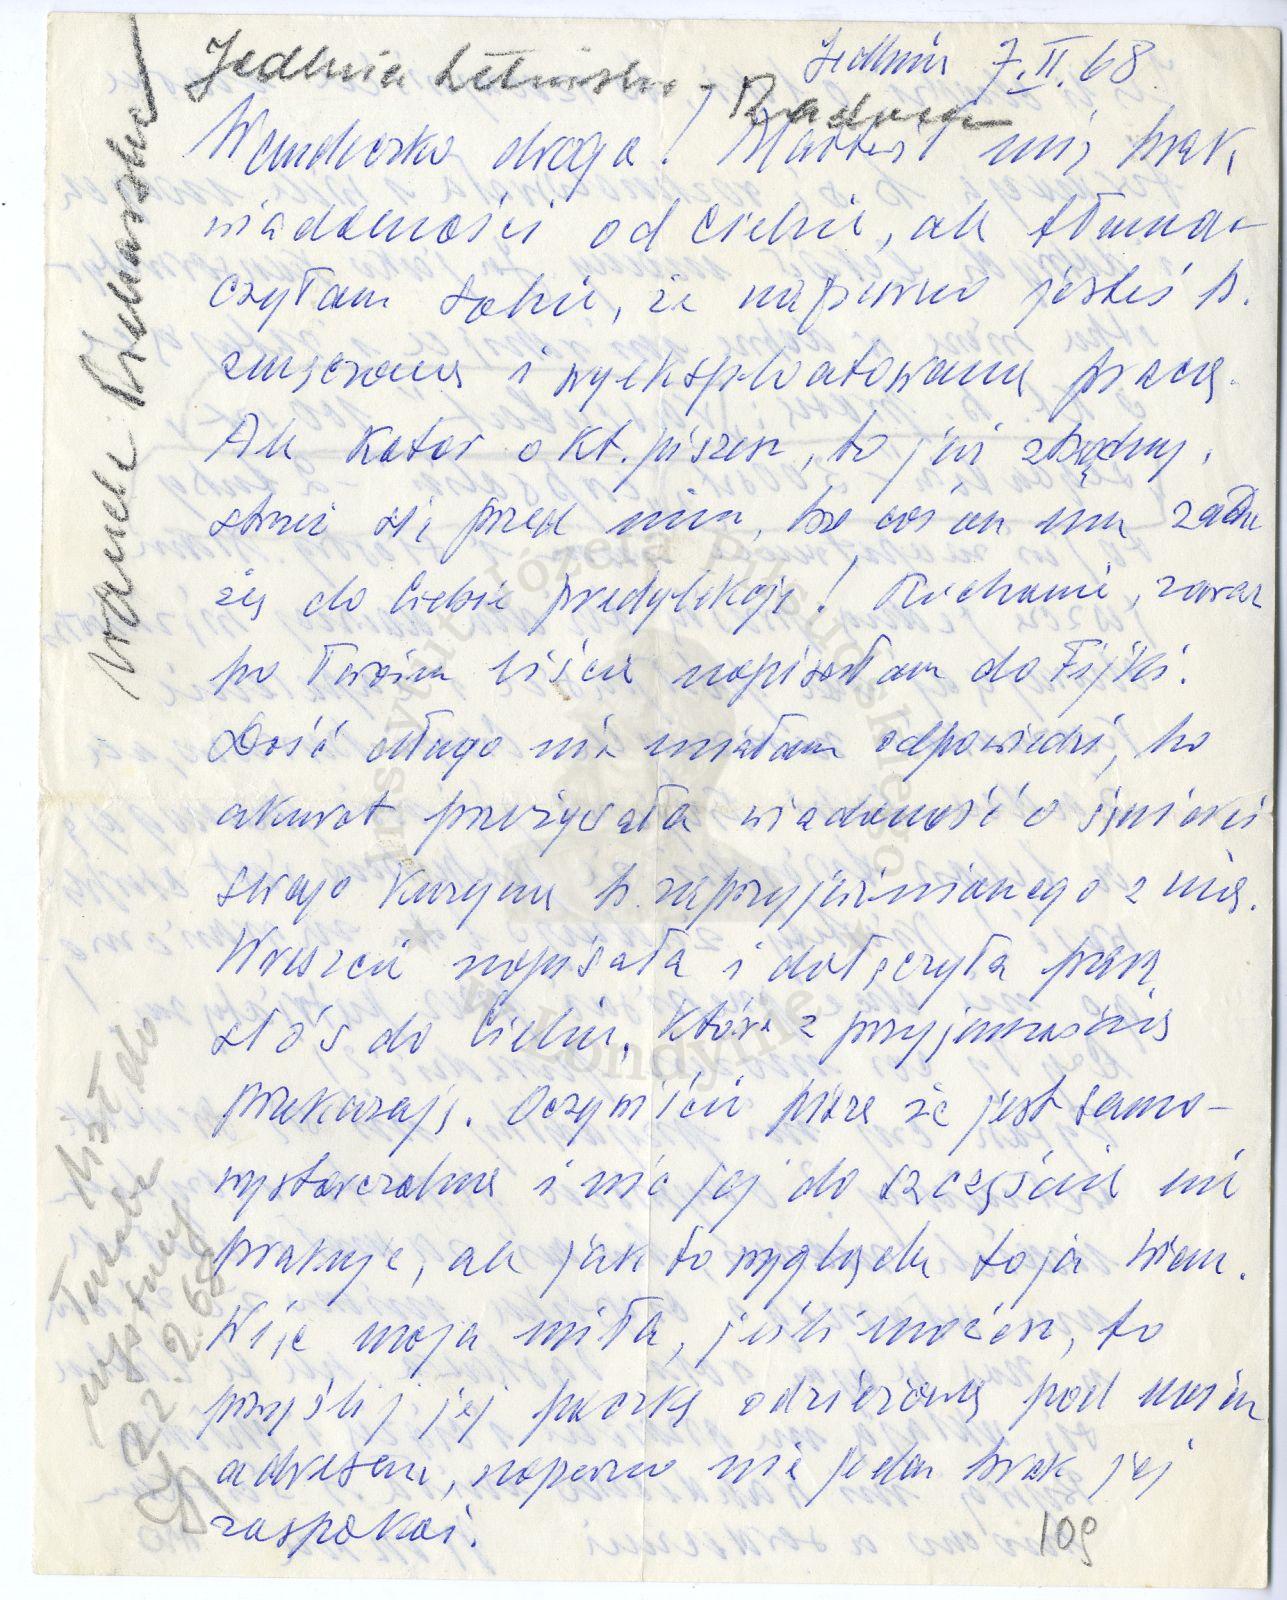 Jedlnia Letnisko - Radom
Jedlnia 7.II.68
Wandeczko droga! Martwił mię brak
wiadomości od Ciebie, ale tłuma-
czyłam sobie, że napewno jesteś b.
zmęczona i wyeksploatowana pracą.
Ale katar o kt. piszesz, to już zbędny,
strzeż się przed nim, bo coś on ma za du
żą do Ciebie predylekcję! Kochanie, zaraz
po Twoim liście napisałam do Fijki.
Dość długo nie miałam odpowiedzi, bo
akurat przeżywała wiadomość o śmierci
swego kuzyna b. zaprzyjaźnionego z nią.
Wreszcie napisała i dołączyła parę
słów do Ciebie, które z przyjemnością
przekazuję. Oczywiście pisze że jest samo-
wystarczalna i nic jej do szczęścia nie
brakuje, ale jak to wygląda to ja wiem.
Więc moja miła, jeśli możesz, to
przyślij jej paczkę odzieżową pod moim
adresem, napewno nie jeden brak jej
zaspokoi.
Wanda
list do
wysłany
22.2.68
109
Instytut Józefa Piłsudskiego
w Londynie